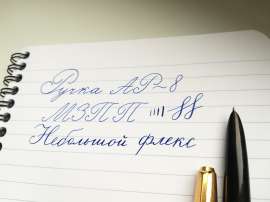 Ручка АР-8
МЗПП
Небольшой флекс